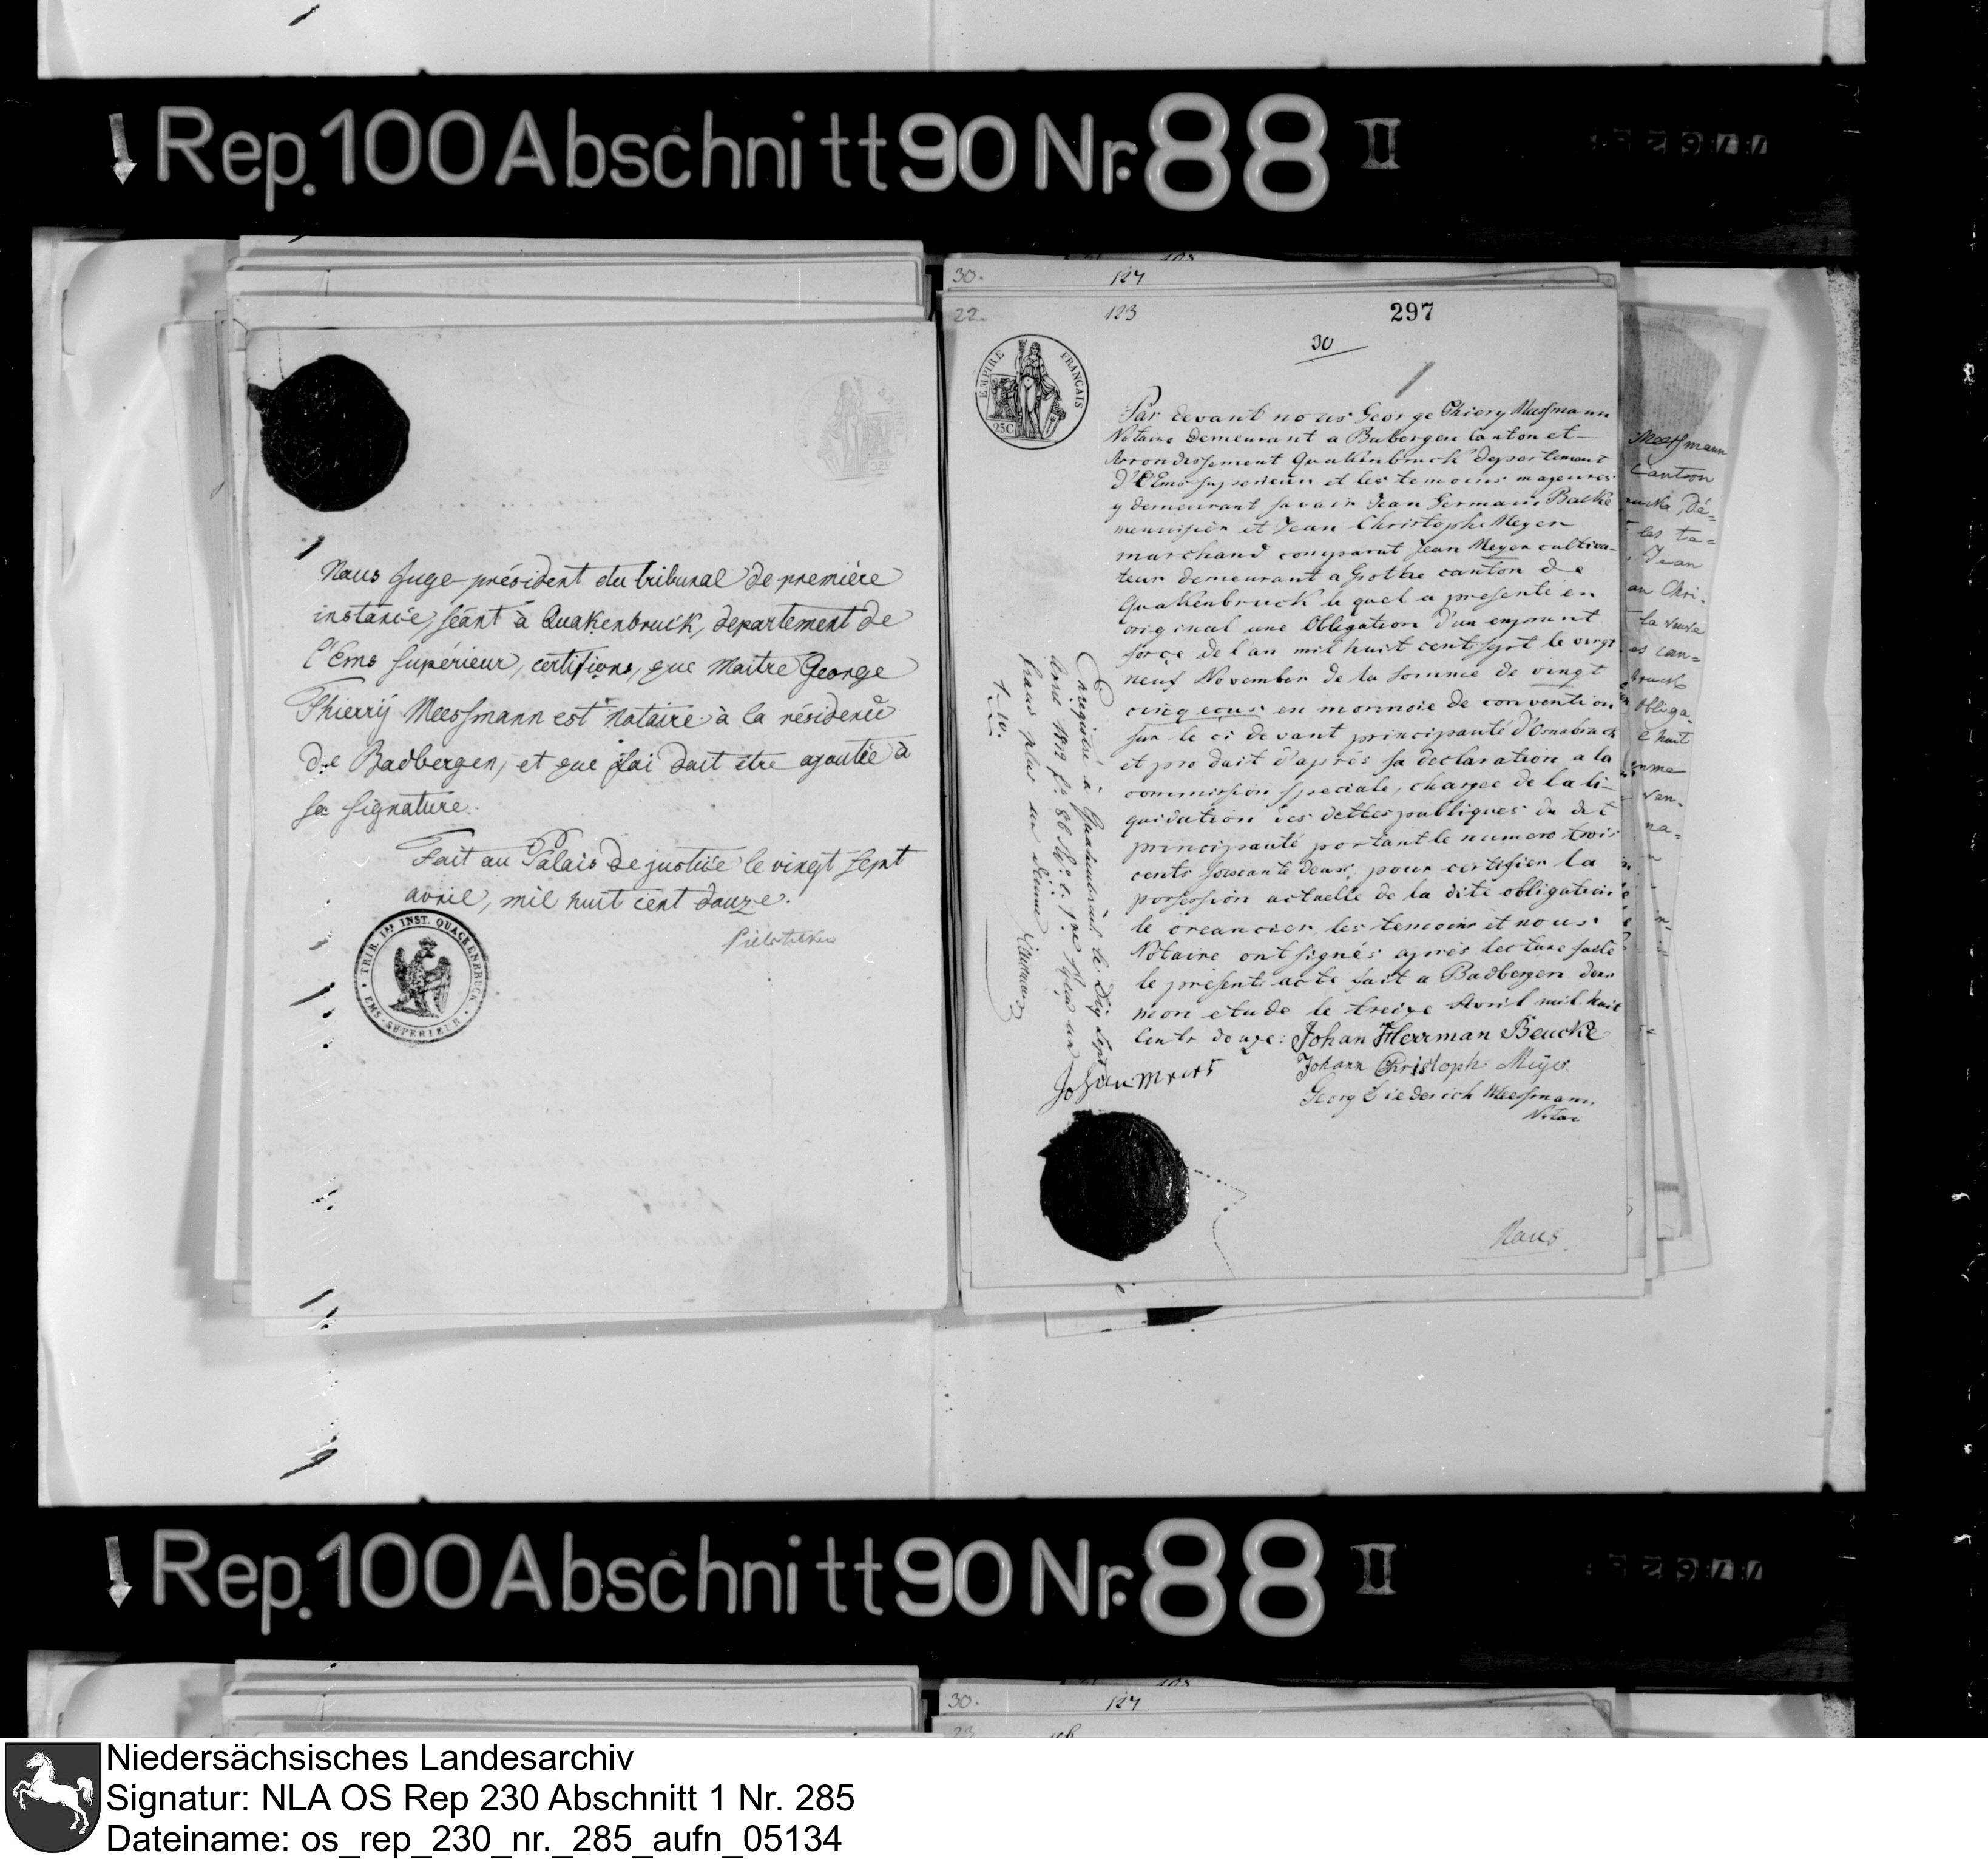 Rep. 100 Abschnitt 90 Nr. 88 II
Nous Juge-président du tribunal de première
instance, séant à Quakenbruck, departement de
l'Ems supérieur, certifions, que Maitre George
Thierrÿ Meessmann est Notaire à la résidence
de Badbergen, et que foi doit etre ajoutée à
sa signature.
Fait au Palais de justice le vingt sept
avril, mil huit cent douze.
TRIB. 1re INST. QUACKENBRUCK
EMS-SUPERIEUR
30. 124
22. 123 297
30
EMPIRE FRANÇAIS
25C
Par devant nous George Thiery Meessmann
Notaire demeurant a Babergen Canton et
Arrondissement Quakenbruck departement
d'l'Ems superieur et les temoins mageures
y demeurant savoir Jean Germain Backe
menuisier et Jean Christophe Meyer
marchand comparut Jean Meyer cultiva-
teur demeurant a Grothe canton de
Quakenbruck le quel a presenté en
original une Obligation d'un emprunt
forcé de l'an mil huit cent sept le vingt
neuf November de la somme de vingt
cinq ecus en monnoie de convention
sur le ci devant principauté d'Osnabruck
et produit d'aprés sa declaration a la
commission speciale, chargée de la li-
quidation des dettes publiques du dit
principauté portant le numero trois
cents soixante deux, pour certifier la
possession actuelle de la dite obligation
le creancier, les temoins et nous
Notaire ont signés aprés lecture faite
le present acte fait a Badbergen dans
mon etude le treize Avril mil huit
Cents douze: Johan Herrman Beucke
Johann Christoph Meÿer
Georg Diederich Meessmann,
Notar
Johan
Enregistré à Quakenbruck le dix sept
Avril 1812 f° 86 reçu un
franc plus un dixieme
1-10.
Nous
Meessmann
Canton
Dé-
les te-
, Jean
an Chri-
la veuve
can-
obliga-
huit
ven-
na-
Rep. 100 Abschnitt 90 Nr. 88 II
30. 124
Niedersächsisches Landesarchiv
Signatur: NLA OS Rep 230 Abschnitt 1 Nr. 285
Dateiname: os_rep_230_nr._285_aufn_05134